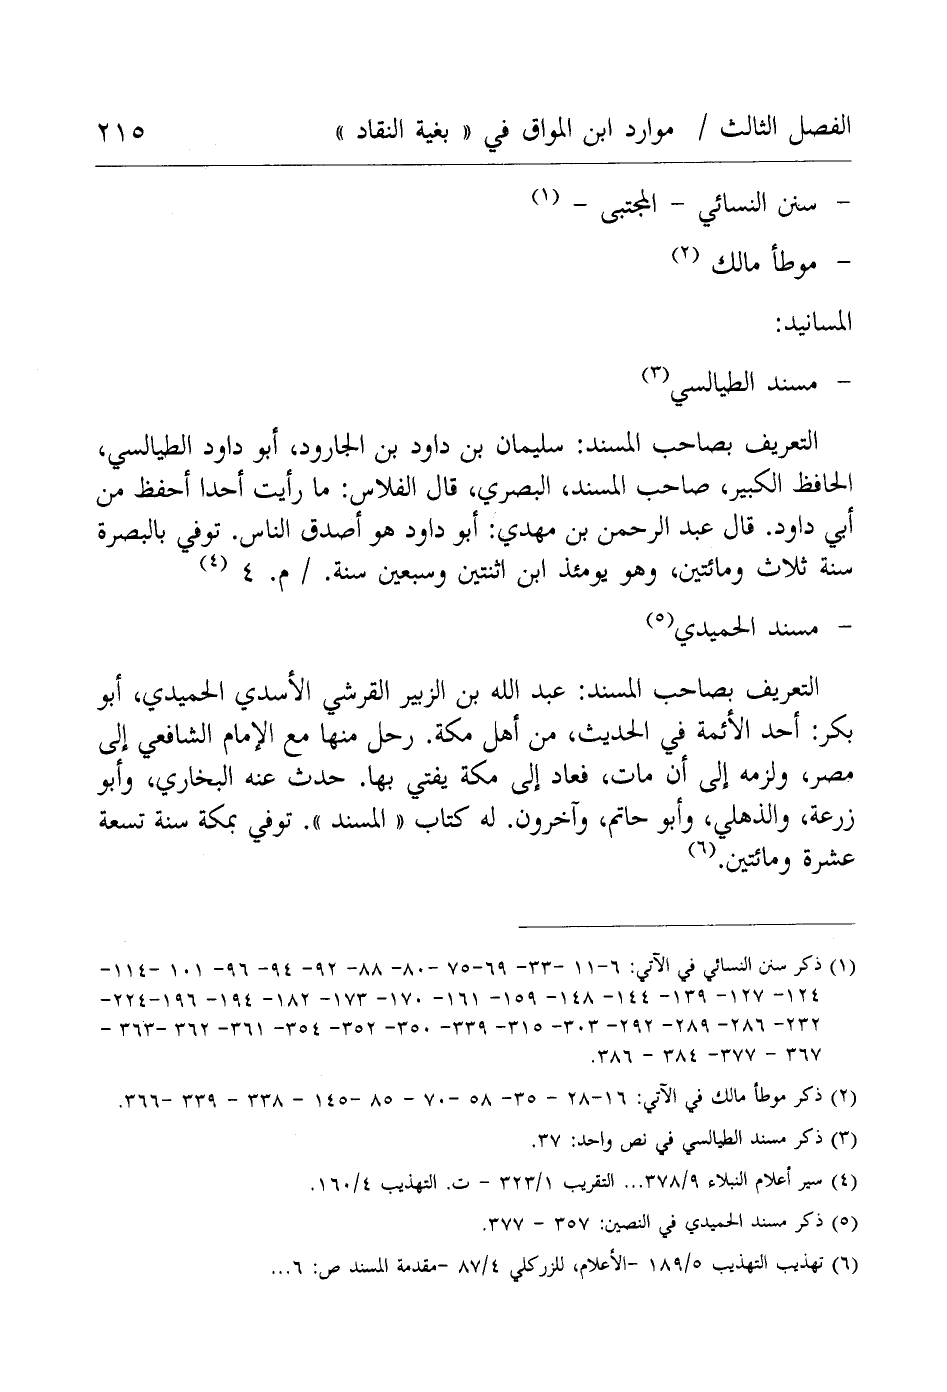 الفصل الثالث / موارد ابن المواق في « بغية النقاد » ٢١٥
– سنن النسائي – المجتبى – (١)
– موطأ مالك (٢)
المسانيد:
– مسند الطيالسي(٣)
التعريف بصاحب المسند: سليمان بن داود بن الجارود، أبو داود الطيالسي،
الحافظ الكبير، صاحب المسند، البصري، قال الفلاس: ما رأيت أحدا أحفظ من
أبي داود. قال عبد الرحمن بن مهدي: أبو داود هو أصدق الناس. توفي بالبصرة
سنة ثلاث ومائتين، وهو يومئذ ابن اثنتين وسبعين سنة. / م. ٤ (٤)
– مسند الحميدي(٥)
التعريف بصاحب المسند: عبد الله بن الزبير القرشي الأسدي الحميدي، أبو
بكر: أحد الأئمة في الحديث، من أهل مكة. رحل منها مع الإمام الشافعي إلى
مصر، ولزمه إلى أن مات، فعاد إلى مكة يفتي بها. حدث عنه البخاري، وأبو
زرعة، والذهلي، وأبو حاتم، وآخرون. له كتاب « المسند ». توفي بمكة سنة تسعة
عشرة ومائتين.(٦)
(١) ذكر سنن النسائي في الآتي: ٦-١١ -٣٣- ٦٩-٧٥ -٨٠- ٨٨- ٩٢- ٩٤- ٩٦- ١٠١ -١١٤-
١٢٤- ١٢٧- ١٣٩- ١٤٤- ١٤٨- ١٥٩- ١٦١- ١٧٠- ١٧٣- ١٨٢- ١٩٤- ١٩٦-٢٢٤-
٢٣٢- ٢٨٦- ٢٨٩- ٢٩٢- ٣٠٣- ٣١٥- ٣٣٩- ٣٥٠- ٣٥٢- ٣٥٤- ٣٦١- ٣٦٢ -٣٦٣ -
٣٦٧ - ٣٧٧- ٣٨٤ - ٣٨٦.
(٢) ذكر موطأ مالك في الآتي: ١٦-٢٨ - ٣٥- ٥٨ -٧٠ - ٨٥ -١٤٥ - ٣٣٨ - ٣٣٩ -٣٦٦.
(٣) ذكر مسند الطيالسي في نص واحد: ٣٧.
(٤) سير أعلام النبلاء ٣٧٨/٩... التقريب ٣٢٣/١ - ت. التهذيب ١٦٠/٤.
(٥) ذكر مسند الحميدي في النصين: ٣٥٧ - ٣٧٧.
(٦) تهذيب التهذيب ١٨٩/٥ -الأعلام، للزركلي ٨٧/٤ -مقدمة المسند ص: ٦...